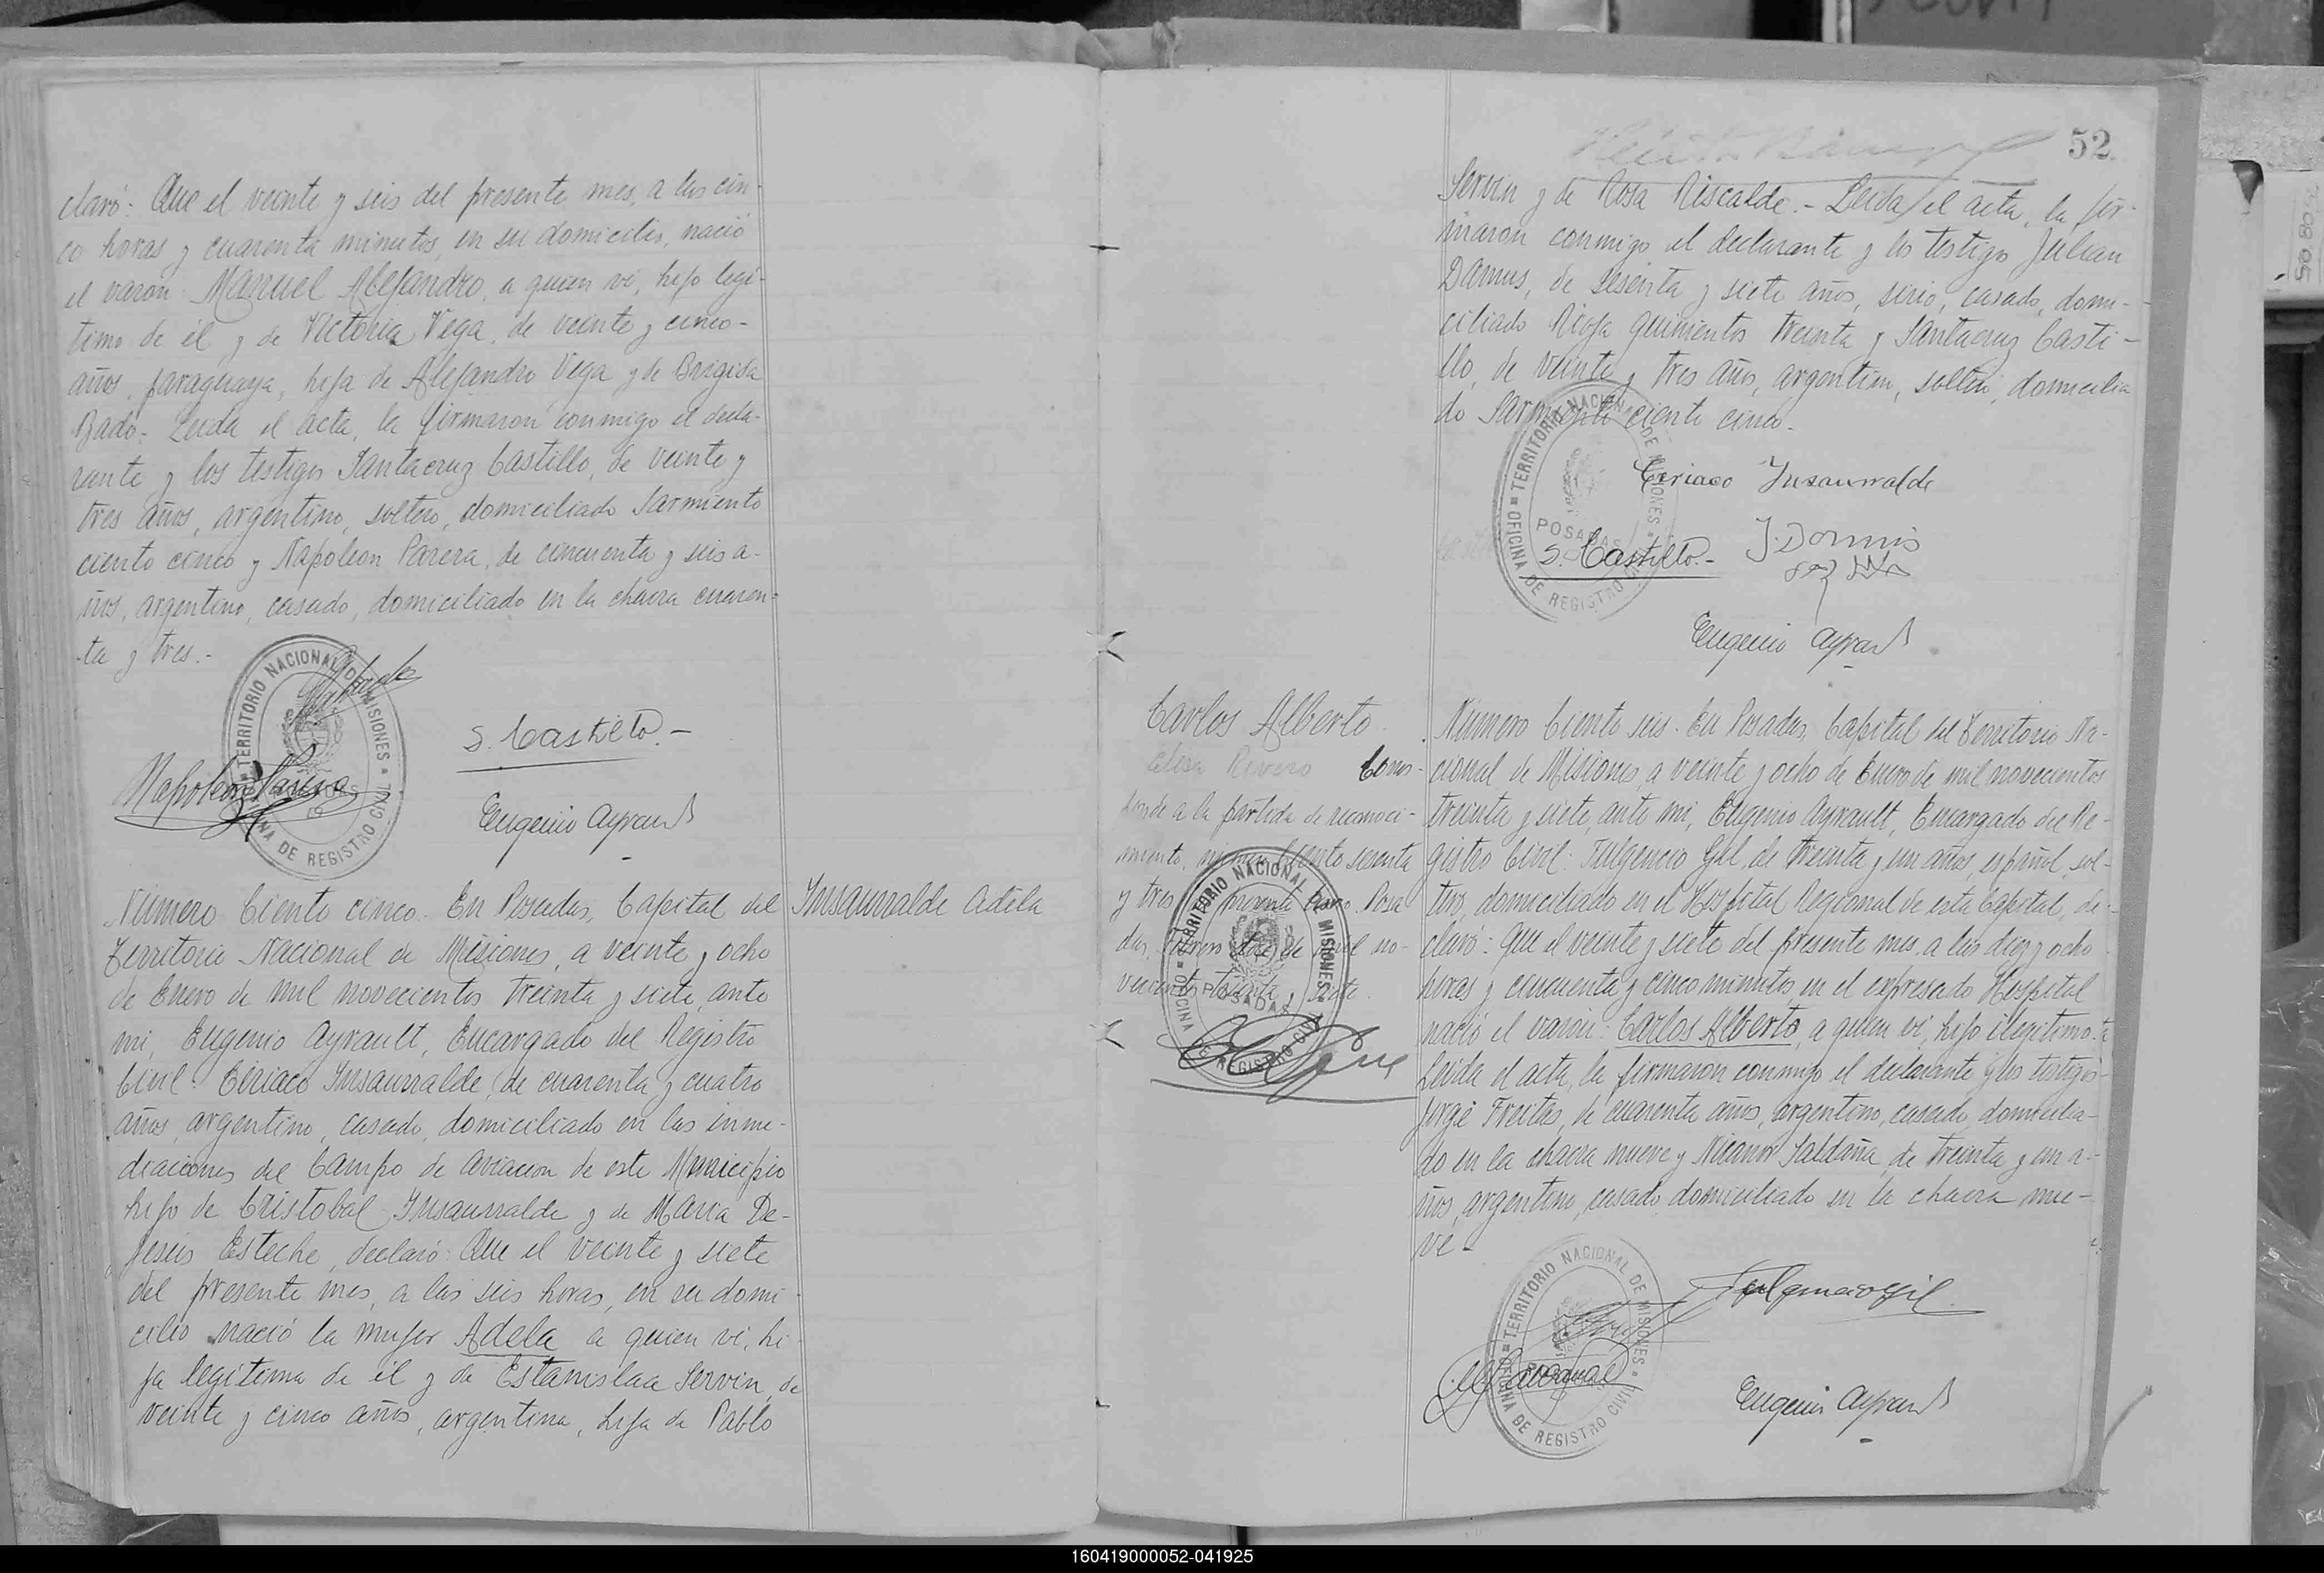 claró: Que el veinte y seis del presente mes, a las cin-
co horas y cuarenta minutos, en su domicilio, nació
el varon Manuel Alejandro, a quien vi, hijo legi-
timo de él y de Victoria Vega, de veinte y cinco-
años, paraguaya, hija de Alejandro Vega y de Brigida
Bado.- Leida el acta, la firmaron conmigo el decla-
rante y los testigos Santacruz Castillo, de veinte y
tres años, argentino, soltero, domiciliado Sarmiento
ciento cinco y Napoleon Parera, de cincuenta y seis a-
ños, argentino, casado, domiciliado en la chacra cuaren-
ta y tres.-
TERRITORIO NACIONAL DE MISIONES
OFICINA DE REGISTRO CIVIL
S. Castillo.-
Napoleon Parera
Eugenio Ayrault
Número Ciento cinco. En Posadas, Capital del
Insaurralde Adela
Territorio Nacional de Misiones, a veinte y ocho
de Enero de mil novecientos treinta y siete, ante
mi, Eugenio Ayrault, Encargado del Registro
Civil: Ciriaco Insaurralde, de cuarenta y cuatro
años, argentino, casado, domiciliado en las inme-
diaciones del Campo de Aviacion de este Municipio
hijo de Cristobal Insaurralde y de Maria De-
Jesús Esteche, declaró: Que el veinte y siete
del presente mes, a las seis horas, en su domi-
cilio nació la mujer Adela a quien vi, hi-
ja legitima de él y de Estanislaa Servin, de
veinte y cinco años, argentina, hija de Pablo
52
Servin y de Rosa Riscalde.- Leida el acta, la fir-
maron conmigo el declarante y los testigos Julian
Damus, de sesenta y siete años, sirio, casado, domi-
ciliado Rioja quinientos treinta y Santacruz Casti-
llo, de veinte y tres años, argentino, soltero, domicilia
do Sarmiento ciento cinco.
TERRITORIO NACIONAL DE MISIONES
POSADAS
OFICINA DE REGISTRO
Ciriaco Insaurralde
S. Castillo.-
Eugenio Ayrault
Carlos Alberto
Elisa Rivero Corres-
ponde a la partida de reconoci-
miento, número Ciento sesenta
y tres presente libro. Posa
das, de mil no-
vecientos treinta y siete.
TERRITORIO NACIONAL DE MISIONES
POSADAS
OFICINA DE REGISTRO CIVIL
Número Ciento seis. En Posadas, Capital del Territorio Na-
cional de Misiones, a veinte y ocho de Enero de mil novecientos
treinta y siete, ante mi, Eugenio Ayrault, Encargado del Re-
gistro Civil: Fulgencio Gil, de treinta y un años, español, sol-
tero, domiciliado en el Hospital Regional de esta Capital, de-
claró: Que el veinte y siete del presente mes, a las diez y ocho
horas y cincuenta y cinco minutos, en el expresado Hospital
nació el varon: Carlos Alberto, a quien vi, hijo ilegitimo.-
Leida el acta, la firmaron conmigo el declarante y los testigos
Jorge Freitas, de cuarenta años, argentino, casado, domicilia-
do en la chacra nueve y Nicanor Saldaña, de treinta y un a-
ños, argentino, casado, domiciliado en la chacra nue-
ve.-
TERRITORIO NACIONAL DE MISIONES
OFICINA DE REGISTRO CIVIL
Fulgencio Gil
Eugenio Ayrault
160419000052-041925